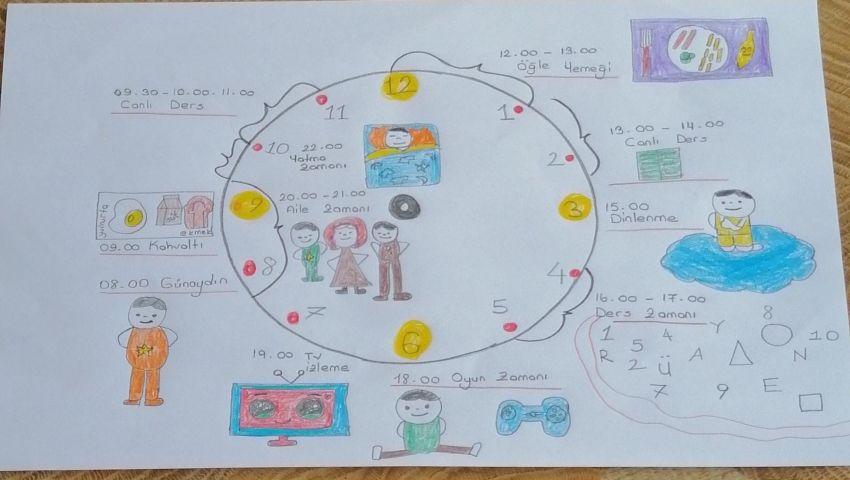 12.00 - 13.00
Öğle Yemeği
09.30 - 10.00. 11.00
Canlı Ders
12
11
1
10
22.00
Yatma
Zamanı
2
13.00 - 14.00
Canlı Ders
20.00 - 21.00
Aile Zamanı
9
3
15.00
Dinlenme
yumurta
ekmek
09.00 Kahvaltı
8
4
08.00 Günaydın
16.00 - 17.00
Ders Zamanı
7
5
6
1 5 4 Y 8
R 2 Ü A N 10
7 9 E
19.00 TV
izleme
18.00 Oyun Zamanı